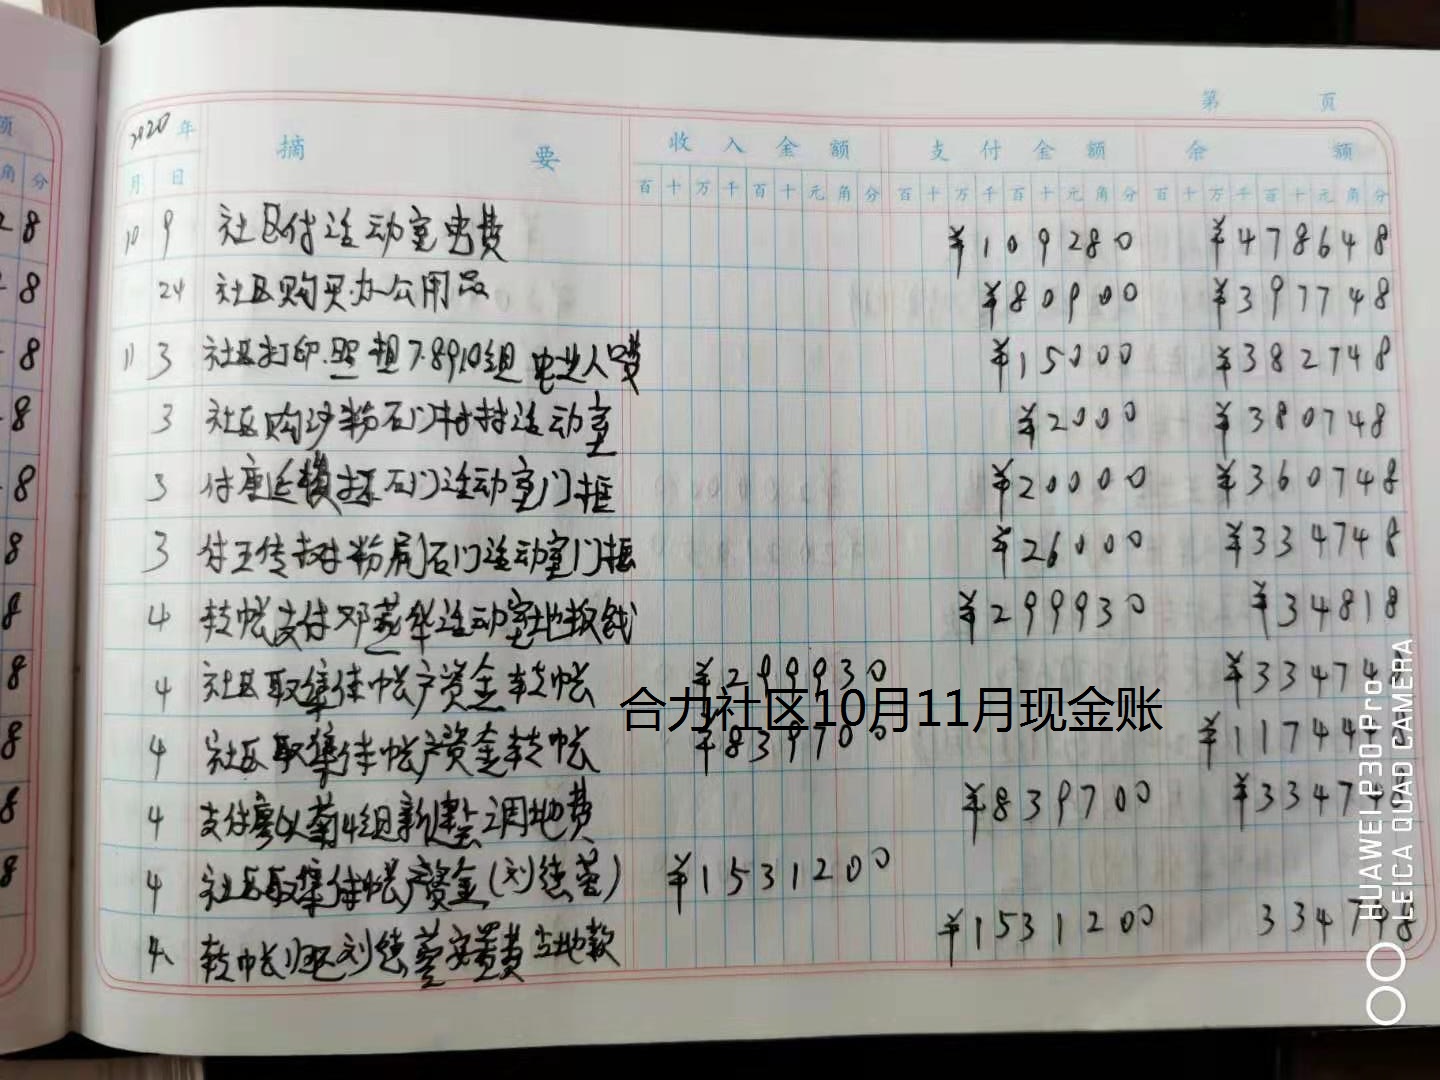 第 页
2020年 摘 要 收入金额 支付金额 余 额
月 日 百十万千百十元角分 百十万千百十元角分 百十万千百十元角分
10 9 社区付活动室电费 ¥109280 ¥478648
24 社区购买办公用品 ¥80900 ¥397748
11 3 社区打印.照相7.8.9.10组 ¥15000 ¥382748
3 社区购沙粉石门村活动室 ¥2000 ¥380748
3 付 石门活动室门框 ¥20000 ¥360748
3 付王传树粉刷石门活动室门框 ¥26000 ¥334748
4 转帐支付邓 华活动室地板钱 ¥299930 ¥34818
4 社区取集体帐户资金转帐 ¥299930 ¥33474
合力社区10月11月现金账
4 社区取集体帐户资金转帐 ¥839700 ¥11744
4 支付廖 菊4组新建 调地费 ¥839700 ¥33474
4 社区取集体帐户资金(刘德蓉) ¥1531200
4 转帐归还刘德蓉安置费占地款 ¥1531200 334748
HUAWEI P30 Pro
LEICA QUAD CAMERA